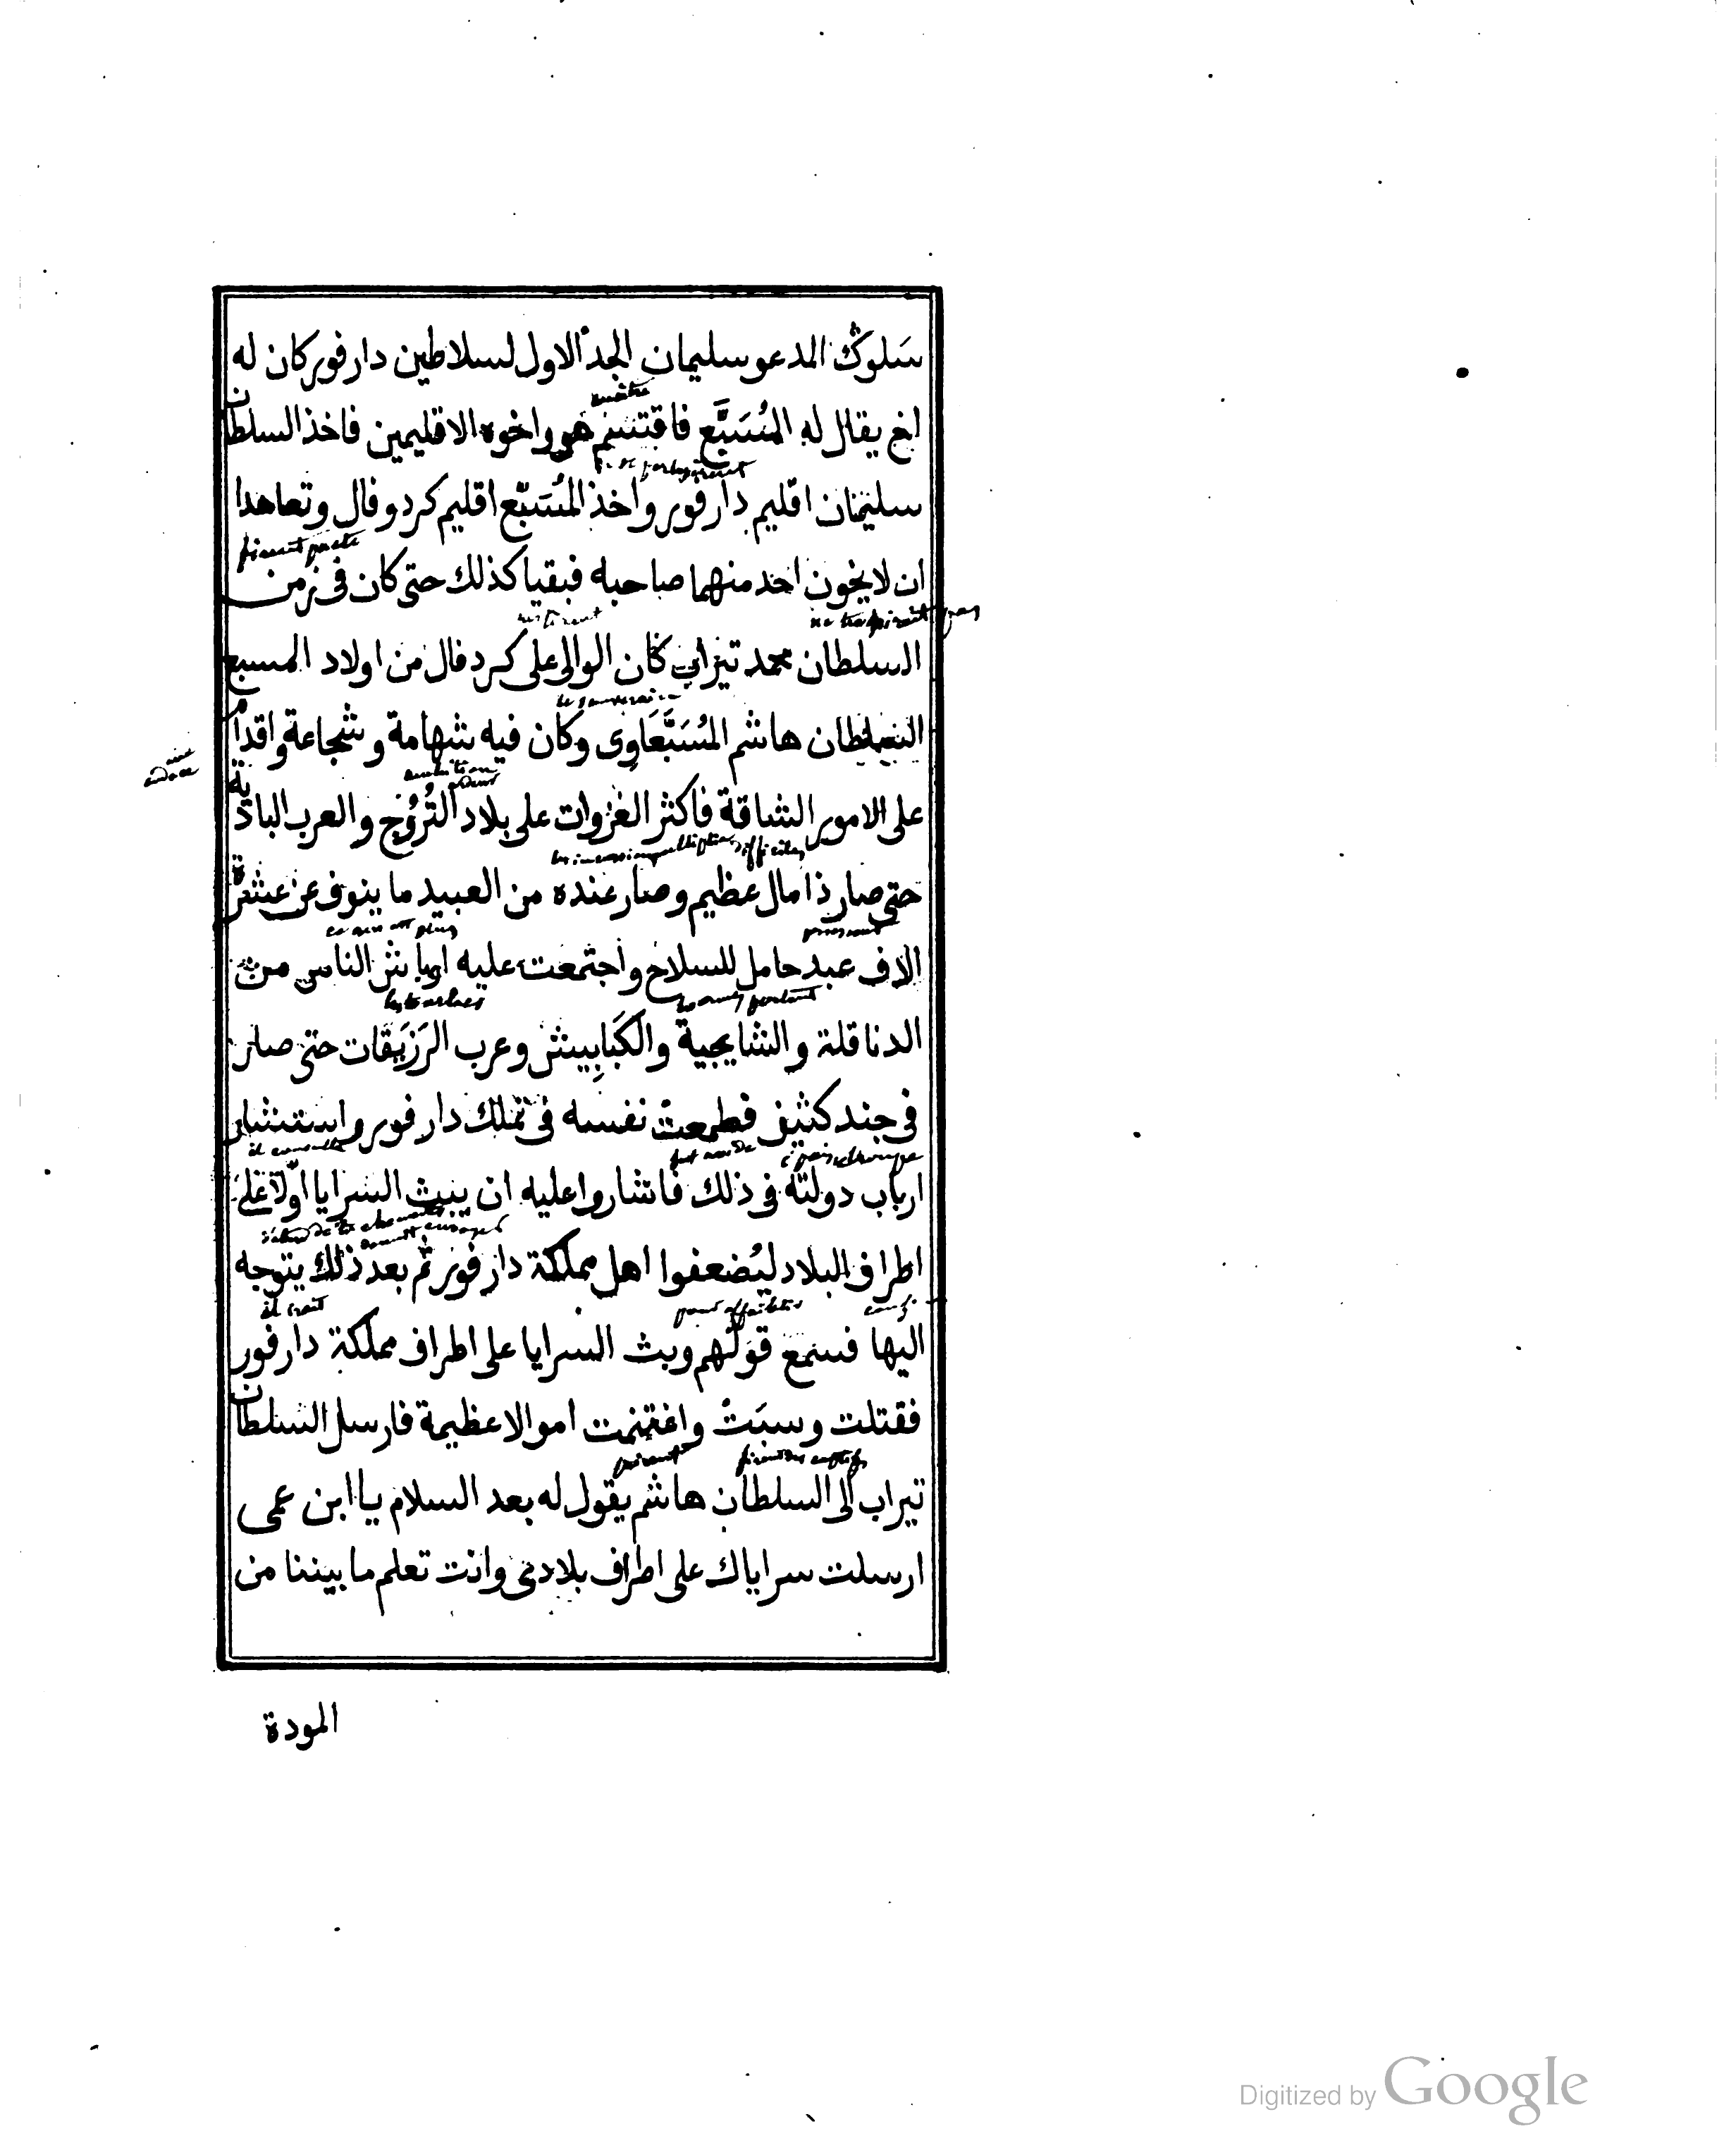 سَلونْك المدعو سليمان الجد الاول لسلاطين دارفور كان له
اخ يقال له المُسَبَّع فاقتسم هو واخوه الاقليمين فاخذ السلطان
سليمان اقليم دارفور واخذ المُسَبّع اقليم كردوفال وتعاهدا
firent pacte
ان لا يخون احد منهما صاحبه فبقيا كذلك حتى كان فى زمن
السلطان محمد تيراب كان الوالى على كردفال من اولاد المسبع
السلطان هاشم المُسَبَّعَاوِى وكان فيه شهامة وشجاعة واقدام
على الامور الشاقة فاكثر الغزوات على بلاد التُرُوج والعرب البادية
difficiles
حتى صار ذا مال عظيم وصار عنده من العبيد ما ينوف عن عشرة
الاف عبد حامل للسلاح واجتمعت عليه اوباش الناس من
الدناقلة والشايجية والكَبَابِيش وعرب الرَزَيقات حتى صار
فى جند كثيف فطمعت نفسه فى تملك دارفور واستشار
il consulta
ارباب دولته فى ذلك فاشاروا عليه ان يبث السرايا اوّلا على
اطراف البلاد ليُضعفوا اهل مملكة دارفور ثم بعد ذلك يتوجه
il irait pour affaiblir
اليها فسمع قولهم وبث السرايا على اطراف مملكة دارفور
فقتلت وسبَتْ واغتنمت اموالا عظيمة فارسل السلطان
تيراب الى السلطان هاشم يقول له بعد السلام يا ابن عمى
ارسلت سراياك على اطراف بلادى وانت تعلم ما بيننا من
المودة
Digitized by Google